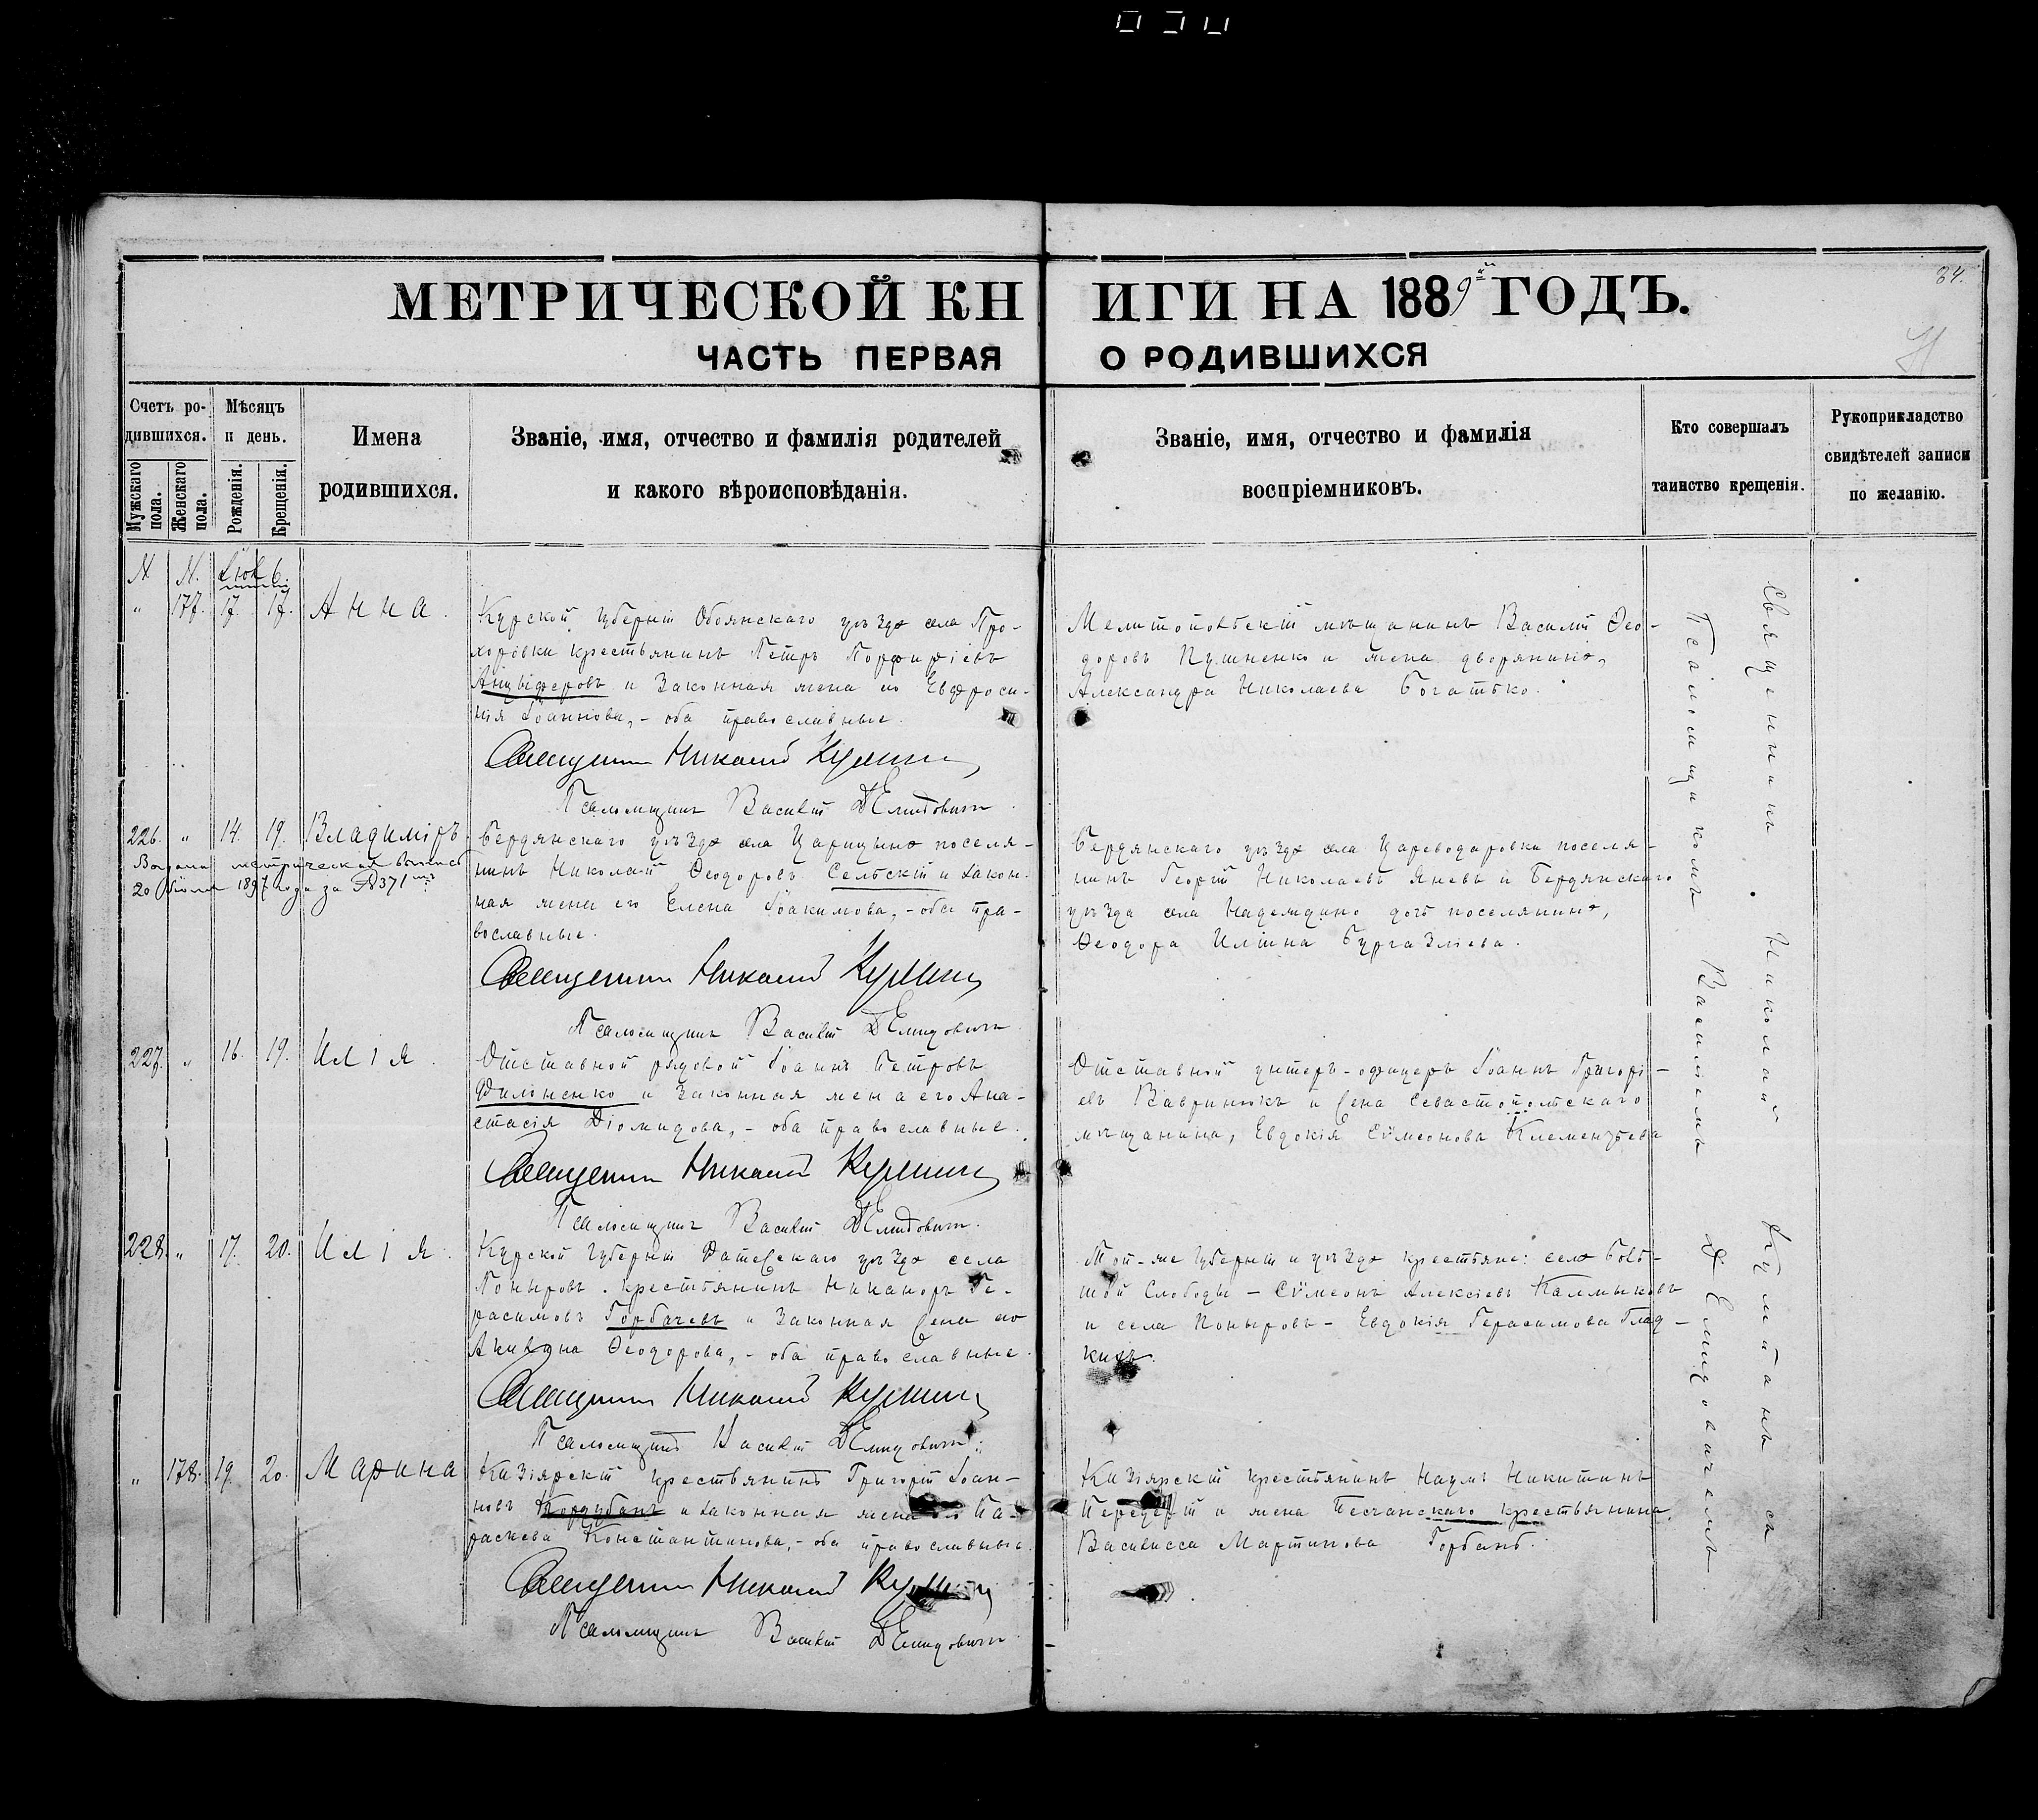 34.
МЕТРИЧЕСКОЙ КНИГИ НА 1889й ГОДЪ.
ЧАСТЬ ПЕРВАЯ О РОДИВШИХСЯ
Счетъ родившихся.
Мужскаго пола.
Женскаго пола.
Мѣсяцъ и день.
Рожденія.
Крещенія.
Имена
родившихся.
Званіе, имя, отчество и фамилія родителей
и какого вѣроисповѣданія.
Званіе, имя, отчество и фамилія
воспріемниковъ.
Кто совершалъ
таинство крещенія.
Рукоприкладство
свидѣтелей записи
по желанію.
N. N.
" 177. 17. 17. Анна.
Курской губерніи Обоянскаго уѣзда села Про-
хоровки крестьянинъ Петръ Порфиріевъ
Анцыферовъ и законная жена его Евфроси-
нія Іоаннова,- оба православные.
Священникъ Николай
Псаломщикъ Василій Демидовичъ
Мелитопольскій мѣщанинъ Василій Ѳео-
доровъ Пушненко и жена дворянина,
Александра Николаева Богатько.
226. " 14. 19. Владиміръ.
Выдана метрическая выпись
20 1897 года за №371
Бердянскаго уѣзда села Царицына поселя-
нинъ Николай Ѳеодоровъ Сельскій и закон-
ная жена его Елена Іоакимова,- оба пра-
вославные.
Священникъ Николай
Псаломщикъ Василій Демидовичъ
Бердянскаго уѣзда села Цареводаровки поселя-
нинъ Георгій Николаевъ Яневъ и Бердянскаго
уѣзда села Надеждино дочь поселянина,
Ѳеодора Иліина Бургазліева.
227. " 16. 19. Илія.
Отставной рядовой Іоаннъ Петровъ
Филоненко и законная жена его Ана-
стасія Діомидова,- оба православные.
Священникъ Николай
Псаломщикъ Василій Демидовичъ.
Отставной унтеръ-офицеръ Іоаннъ Григорі-
евъ Вавринюкъ и жена Севастопольскаго
мѣщанина, Евдокія Сѵмеонова Клементьева
228. " 17. 20. Илія.
Курской губерніи Фатежскаго уѣзда села
Поныровъ крестьянинъ Никаноръ Ге-
расимовъ Горбачевъ и законная жена его
Акилина Ѳеодорова,- оба православные.
Священникъ Николай
Псаломщикъ Василій Демидовичъ
Той-же губерніи и уѣзда крестьяне: села Боль-
шой Слободы - Сѵмеонъ Алексіевъ Калмыковъ
и села Поныровъ - Евдокія Герасимова Глад-
кихъ.
" 178. 19. 20. Марина
Кизіярскій крестьянинъ Григорій Іоан-
новъ Кордубанъ и законная жена его Па-
раскева Константинова,- оба православные.
Священникъ Николай
Псаломщикъ Василій Демидовичъ
Кизіярскій крестьянинъ Наумъ Никитинъ
Передерій и жена Песчанскаго крестьянина,
Василисса Мартинова Горбань.
Священникъ Николай съ
Псаломщикомъ Василіемъ Демидовичемъ